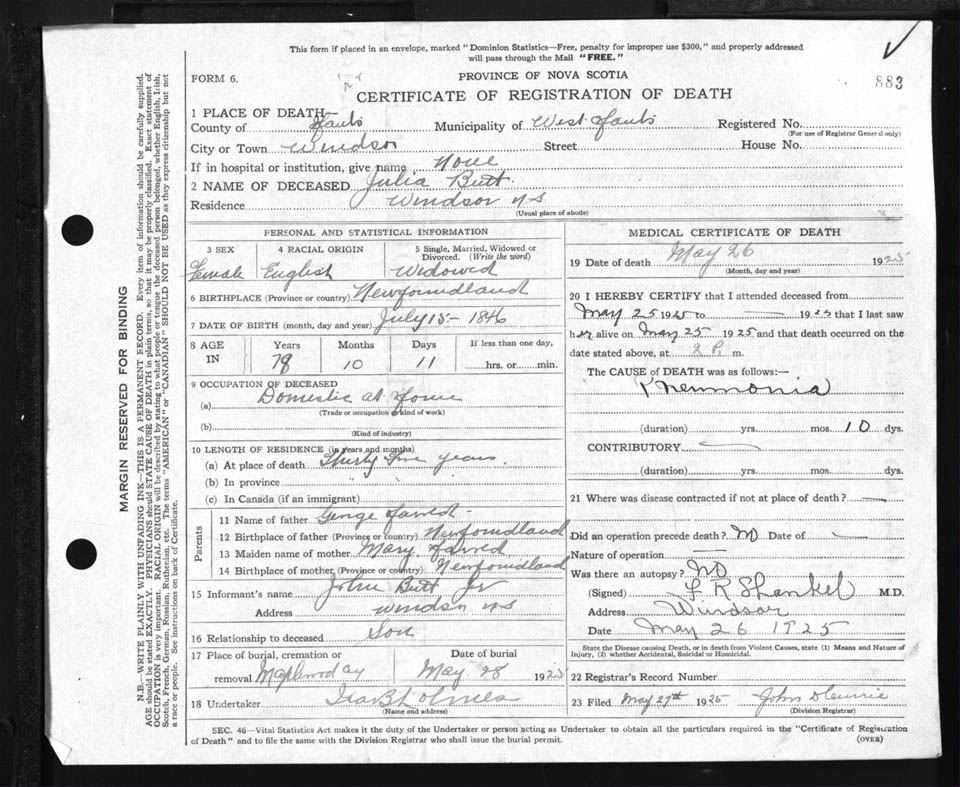 This form if placed in an envelope, marked "Dominion Statistics—Free, penalty for improper use $300," and properly addressed
will pass through the Mail "FREE."
FORM 6.
PROVINCE OF NOVA SCOTIA
883
CERTIFICATE OF REGISTRATION OF DEATH
1 PLACE OF DEATH
County of Hants Municipality of West Hants Registered No.
(For use of Registrar General only)
City or Town Windsor Street House No.
If in hospital or institution, give name None
2 NAME OF DECEASED Julia Butt
Residence Windsor NS
(Usual place of abode)
PERSONAL AND STATISTICAL INFORMATION
3 SEX 4 RACIAL ORIGIN 5 Single, Married, Widowed or
Divorced. (Write the word)
Female English Widowed
6 BIRTHPLACE (Province or country) Newfoundland
7 DATE OF BIRTH (month, day and year) July 15 - 1846
8 AGE IN Years Months Days If less than one day,
78 10 11 hrs. or min.
9 OCCUPATION OF DECEASED
(a) Domestic at Home
(Trade or occupation or kind of work)
(b)
(Kind of industry)
10 LENGTH OF RESIDENCE (in years and months)
(a) At place of death Thirty Five years
(b) In province " " "
(c) In Canada (if an immigrant)
Parents
11 Name of father George
12 Birthplace of father (Province or country) Newfoundland
13 Maiden name of mother Mary
14 Birthplace of mother (Province or country) Newfoundland
15 Informant's name John Butt Jr
Address Windsor NS
16 Relationship to deceased Son
17 Place of burial, cremation or Date of burial
removal Maplewood May 28 1925
18 Undertaker
(Name and address)
MEDICAL CERTIFICATE OF DEATH
19 Date of death May 26 1925
(Month, day and year)
20 I HEREBY CERTIFY that I attended deceased from
May 25 1925 to — 1925 that I last saw
her alive on May 25 1925 and that death occurred on the
date stated above, at 2 P. m.
The CAUSE OF DEATH was as follows:—
Pneumonia
(duration) yrs. mos. 10 dys.
CONTRIBUTORY —
(duration) yrs. mos. dys.
21 Where was disease contracted if not at place of death? —
Did an operation precede death? No Date of —
Nature of operation —
Was there an autopsy? No
(Signed) F R Shankel M.D.
Address Windsor
Date May 26 1925
State the Disease causing Death, or in death from Violent Causes, state (1) Means and Nature of
Injury, (2) whether Accidental, Suicidal or Homicidal.
22 Registrar's Record Number
23 Filed May 27th 1925 John
(Division Registrar)
SEC. 46—Vital Statistics Act makes it the duty of the Undertaker or person acting as Undertaker to obtain all the particulars required in the "Certificate of Registration
of Death" and to file the same with the Division Registrar who shall issue the burial permit. (OVER)
MARGIN RESERVED FOR BINDING
N.B.—WRITE PLAINLY WITH UNFADING INK—THIS IS A PERMANENT RECORD. Every item of information should be carefully supplied.
AGE should be stated EXACTLY. PHYSICIANS should STATE CAUSE OF DEATH in plain terms, so that it may be properly classified. Exact statement of
OCCUPATION is very important. RACIAL ORIGIN will be described by stating to what people or tongue the deceased person belonged, whether English, Irish,
Scotch, French, German, Russian, Ruthenian, etc. The terms "AMERICAN" or "CANADIAN" SHOULD NOT BE USED as they express citizenship but not
a race or people. See instructions on back of Certificate.